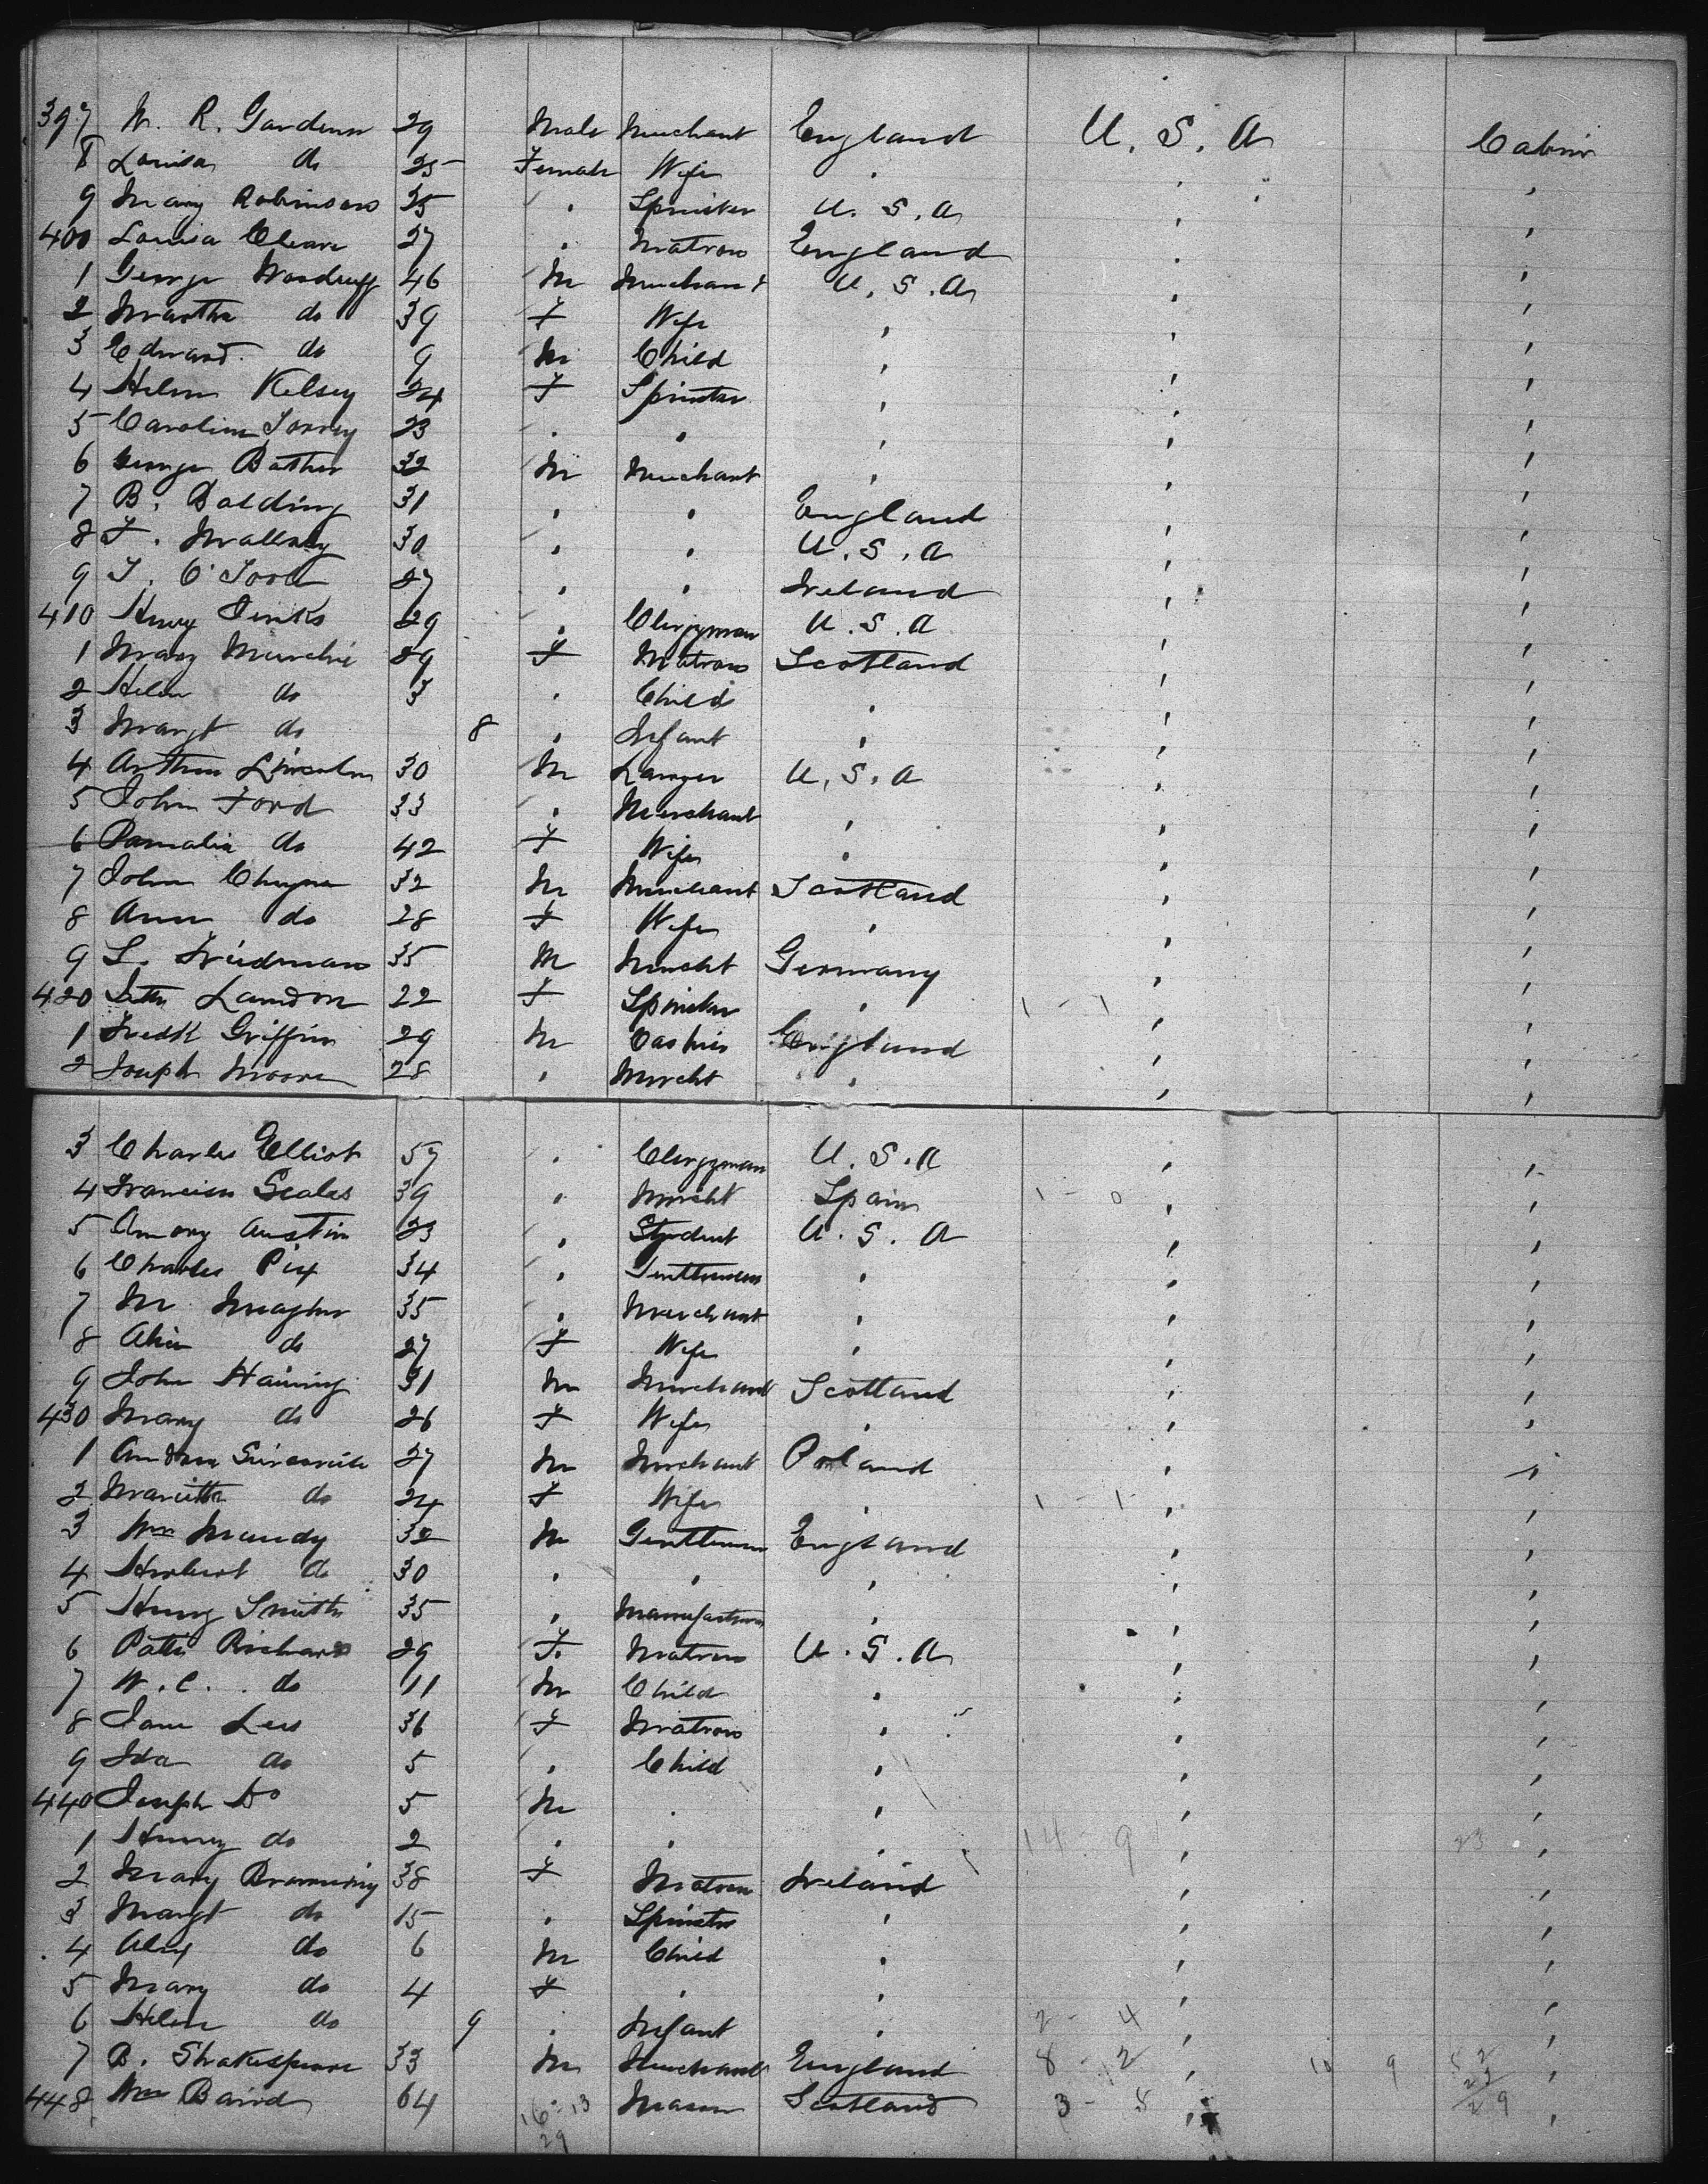 397 W. R. Gardener 29 Male Merchant England U. S. A Cabin
8 Louisa do 25 Female Wife "
9 Mary Robinson 25 " Spinster U. S. A " "
400 Louisa Cleave 27 " Matron England " "
1 George Woodruff 46 M Merchant U. S. A " "
2 Martha do 39 F Wife " " "
3 Edward do 9 M Child " " "
4 Helen Kelsey 24 F Spinster " " "
5 Caroline Torrey 23 " " " " "
6 George Bather 32 M Merchant " " "
7 B. Balding 31 " " England " "
8 F. Mallory 30 " " U. S. A " "
9 T. O'Toole 27 " " Ireland " "
410 Henry Jenks 29 " Clergyman U. S. A " "
1 Mary Murchie 29 F Matron Scotland " "
2 Helen do 3 " Child " " "
3 Margt do 8 " Infant " " "
4 Arthur Lincoln 30 M Lawyer U. S. A " "
5 John Ford 33 " Merchant " " "
6 Pamalia do 42 F Wife " " "
7 John Cheyne 32 M Merchant Scotland " "
8 Ann do 28 F Wife " " "
9 L. Friedman 35 M Mercht Germany " "
420 Landon 22 F Spinster " 1 - 1 " "
1 Fredk Griffin 29 M Cashier England " "
2 Joseph Moore 28 " Mercht " " "
3 Charles Elliot 57 " Clergyman U. S. A " "
4 Francisco Scales 39 " Mercht Spain 1 - 0 " "
5 Amory Austin 23 " Student U. S. A " "
6 Charles Pix 34 " Gentleman " " "
7 M. Meagher 35 " Merchant " " "
8 do 27 F Wife " " "
9 John Haining 31 M Merchant Scotland " "
430 Mary do 26 F Wife " " "
1 27 M Merchant Poland " "
2 Marietta do 24 F Wife " 1 - 1 " "
3 Wm Mundy 32 M Gentleman England " "
4 Herbert do 30 " " " " "
5 Henry Smith 35 " Manufacturer " " "
6 Patti Richards 29 F. Matron U. S. A " "
7 W. C. do 11 M Child " " "
8 Jane Lees 36 F Matron " " "
9 Ida do 5 " Child " " "
440 Joseph Do 5 M " " " "
1 Henry do 2 " " " 14 - 9 " 23 "
2 Mary Browning 38 F Matron Ireland " "
3 Margt do 15 " Spinster " " "
4 Alex do 6 M Child " " "
5 Mary do 4 F " " " "
6 Helen do 9 " Infant " 2 - 4 " "
7 B. Shakespeare 33 M Merchant England 8 - 12 " 10 9 52 "
448 Wm Baird 64 16 - 13 29 Mason Scotland 3 - 5 " 23 29 "